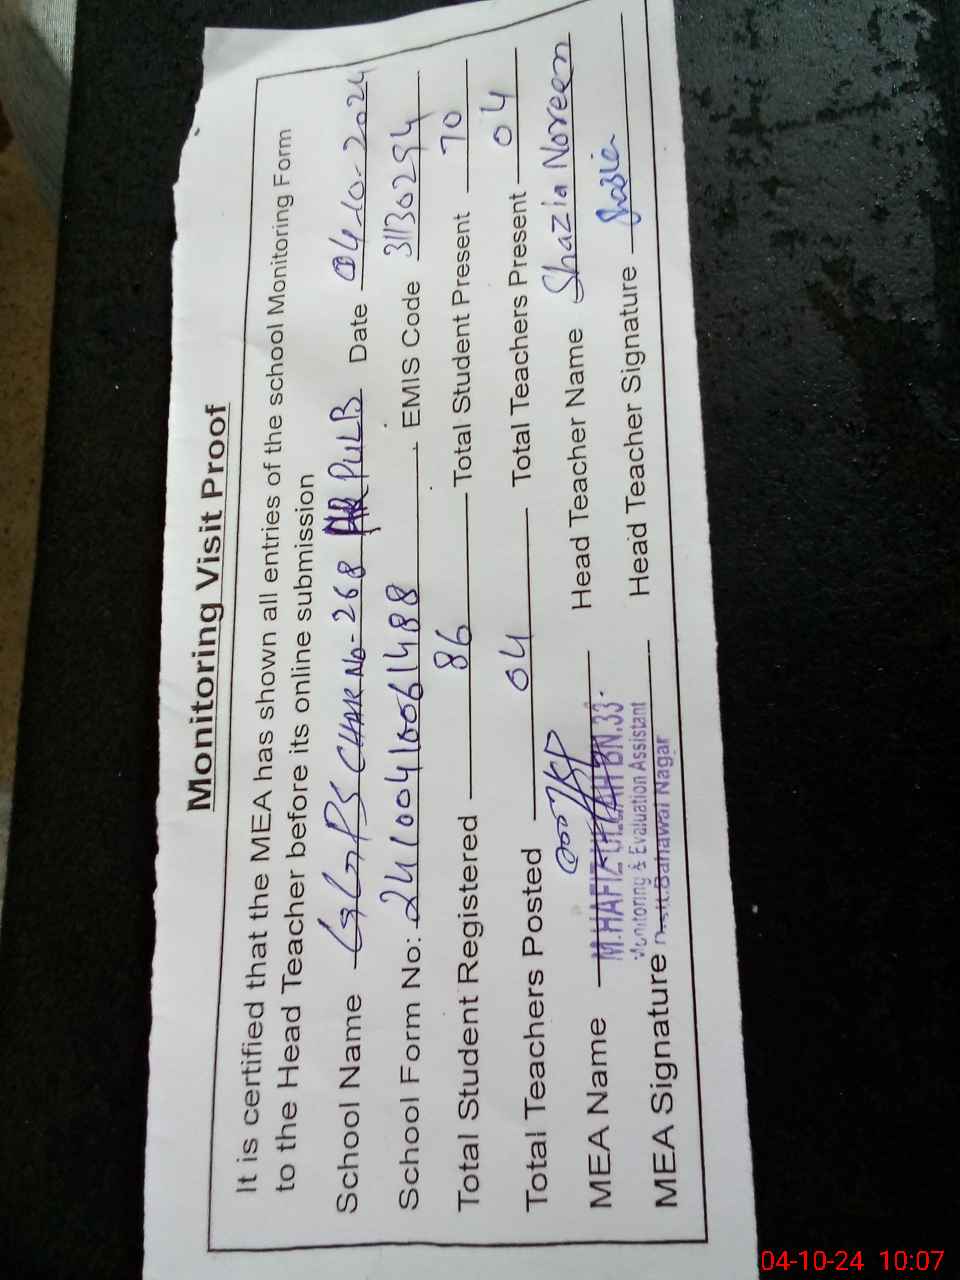 Monitoring Visit Proof
It is certified that the MEA has shown all entries of the school Monitoring Form
to the Head Teacher before its online submission
School Name GGPS CHAK No-268 PULB Date 04-10-2024
School Form No: 24100410061488 EMIS Code 31130294
Total Student Registered 86 Total Student Present 70
Total Teachers Posted 04 Total Teachers Present 04
MEA Name M.HAFIZ ULLAH BN.33. Head Teacher Name Shazia Noreen
Monitoring & Evaluation Assistant
MEA Signature Distt. Bahawal Nagar Head Teacher Signature Shazia
04-10-24 10:07